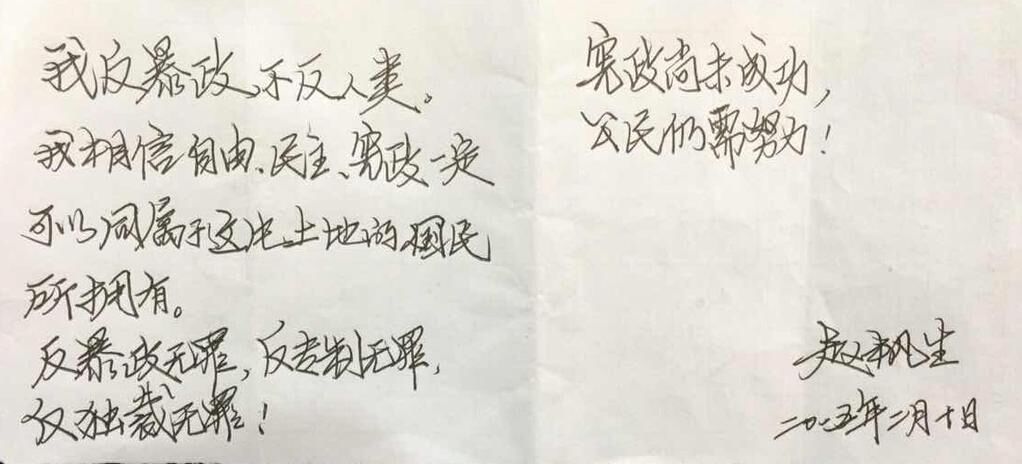 我反暴政,不反人类。
我相信自由、民主、宪政一定
可以同属于这片土地的国民
所拥有。
反暴政无罪,反专制无罪,
反独裁无罪!
宪政尚未成功,
公民仍需努力!
赵枫生
二〇二五年二月十日